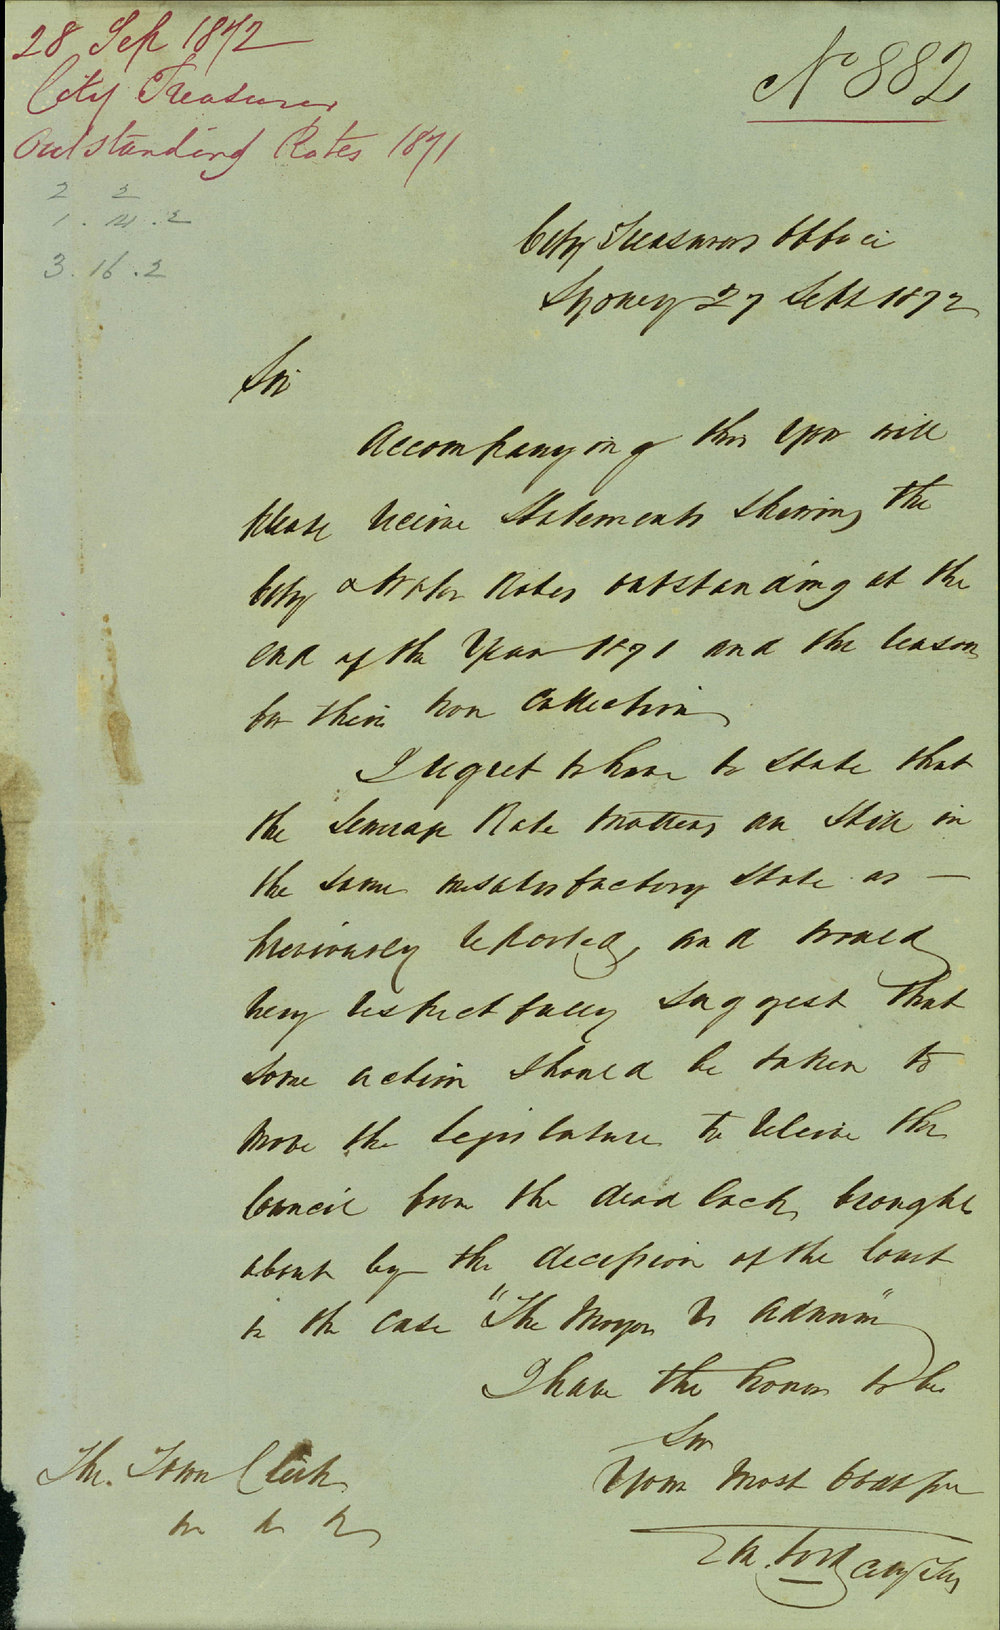 28 Sep 1872
City Treasurer
Outstanding Rates 1871
No 882
2 2
1 . 14 . 2
3 . 16 . 2
City Treasurers Office
Sydney 27 Sept 1872
Sir
Accompanying this you will
please receive Statements shewing the
City & Water Rates outstanding at the
end of the Year 1871 and the reason
for their non Collection
I regret to have to state that
the Sewerage Rate matters are still in
the same unsatisfactory state as —
previously reported, and would
very respectfully suggest that
some action should be taken to
move the Legislature to relieve the
Council from the dead lock brought
about by the decission of the Court
in the case "The Mayor Vs
I have the honor to be
Sir
Your most Obdt
The Town Clerk
City Trs